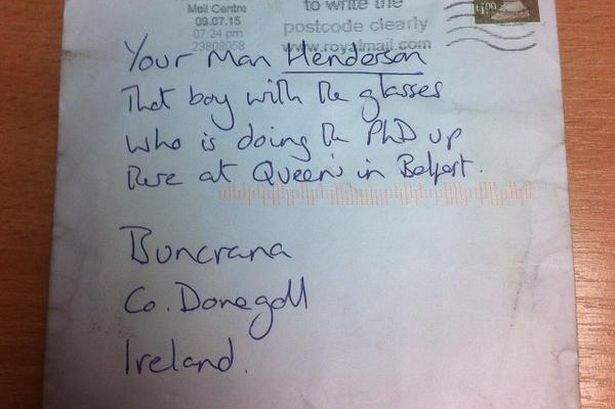 Mail Centre
09.07.15
07:24 pm
23808058
to write the
postcode clearly
www.royalmail.com
£1.00
Your Man Henderson
That boy with the glasses
who is doing the PhD up
there at Queen's in Belfast.
Buncrana
Co. Donegall
Ireland.